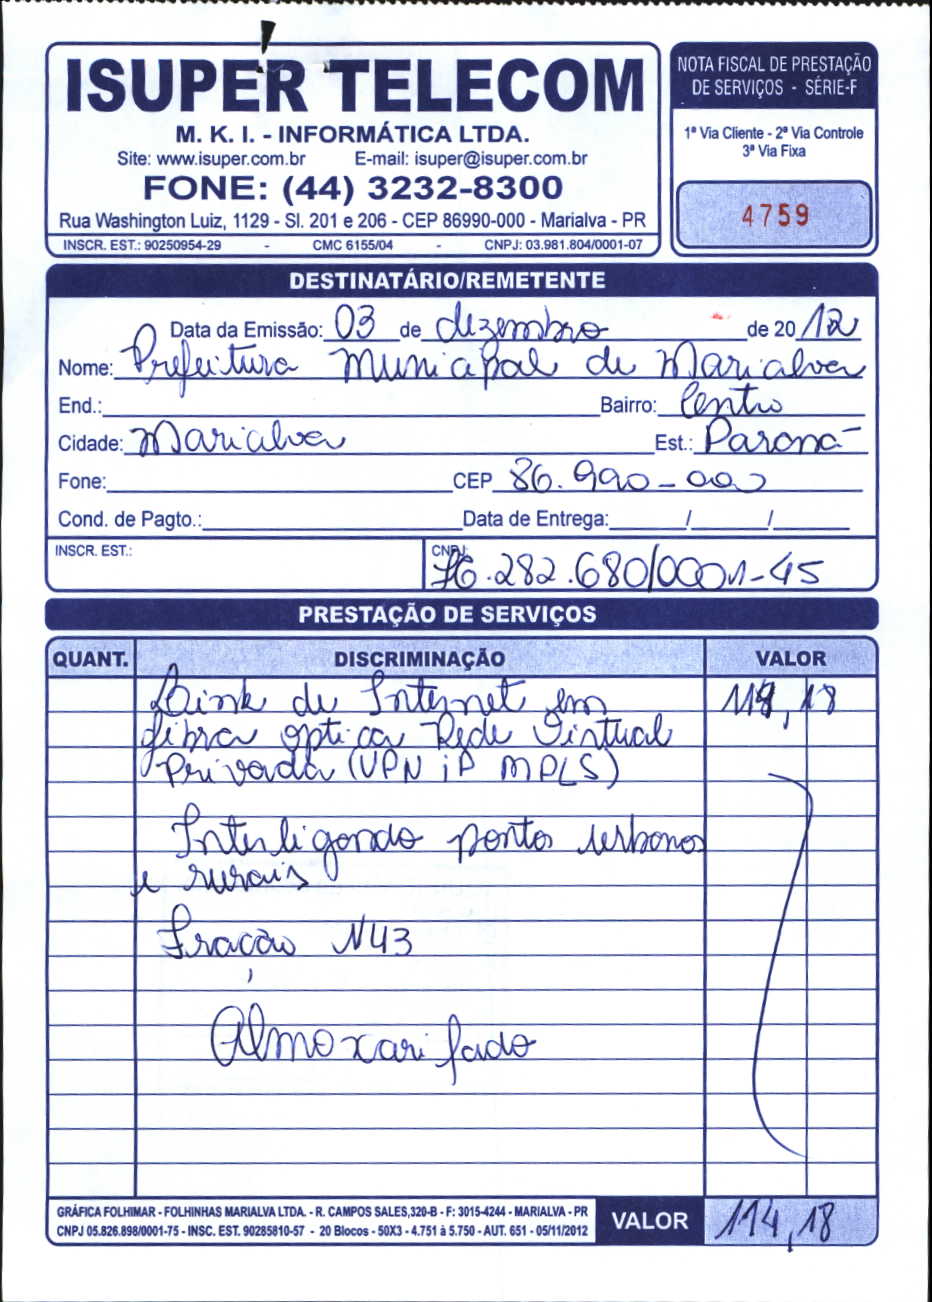 ISUPER TELECOM
M. K. I. - INFORMÁTICA LTDA.
Site: www.isuper.com.br E-mail: isuper@isuper.com.br
FONE: (44) 3232-8300
Rua Washington Luiz, 1129 - Sl. 201 e 206 - CEP 86990-000 - Marialva - PR
INSCR. EST.: 90250954-29 - CMC 6155/04 - CNPJ: 03.981.804/0001-07
NOTA FISCAL DE PRESTAÇÃO
DE SERVIÇOS - SÉRIE-F
1ª Via Cliente - 2ª Via Controle
3ª Via Fixa
4759
DESTINATÁRIO/REMETENTE
Data da Emissão: 03 de dezembro de 2012
Nome: Prefeitura Municipal de Marialva
End.: Bairro: Centro
Cidade: Marialva Est.: Paraná
Fone: CEP 86.990-000
Cond. de Pagto.: Data de Entrega: / /
INSCR. EST.: CNPJ: 76.282.680/0001-45
PRESTAÇÃO DE SERVIÇOS
QUANT. DISCRIMINAÇÃO VALOR
Link de Internet em 114,18
fibra optica Rede Virtual
Privada (VPN iP MPLS)
Interligando pontos urbanos
e rurais
Fração N43
Almoxarifado
GRÁFICA FOLHIMAR - FOLHINHAS MARIALVA LTDA. - R. CAMPOS SALES,320-B - F: 3015-4244 - MARIALVA - PR
CNPJ 05.826.898/0001-75 - INSC. EST. 90285810-57 - 20 Blocos - 50X3 - 4.751 à 5.750 - AUT. 651 - 05/11/2012
VALOR 114,18